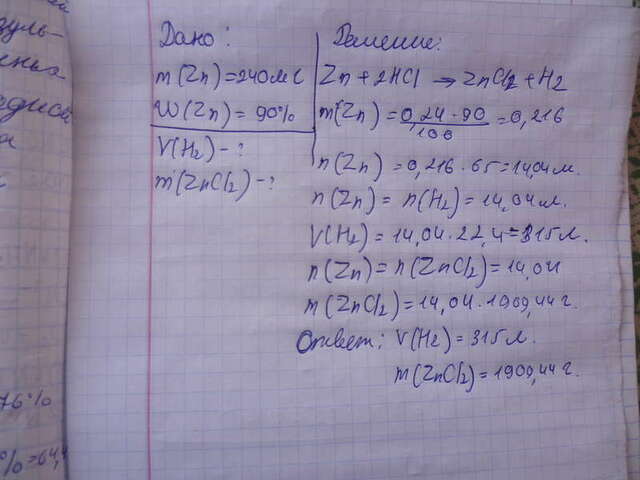 Дано:
m(Zn)=240мг
W(Zn)=90%
V(H2)-?
m(ZnCl2)-?
Решение:
Zn+2HCl→ZnCl2+H2
m(Zn)=0,24·90/100=0,216
n(Zn)=0,216·65=14,04м.
n(Zn)=n(H2)=14,04м.
V(H2)=14,04·22,4=315л.
n(Zn)=n(ZnCl2)=14,04
m(ZnCl2)=14,04·1909,44г.
Ответ: V(H2)=315л.
m(ZnCl2)=1909,44г.
76%
%=64,4